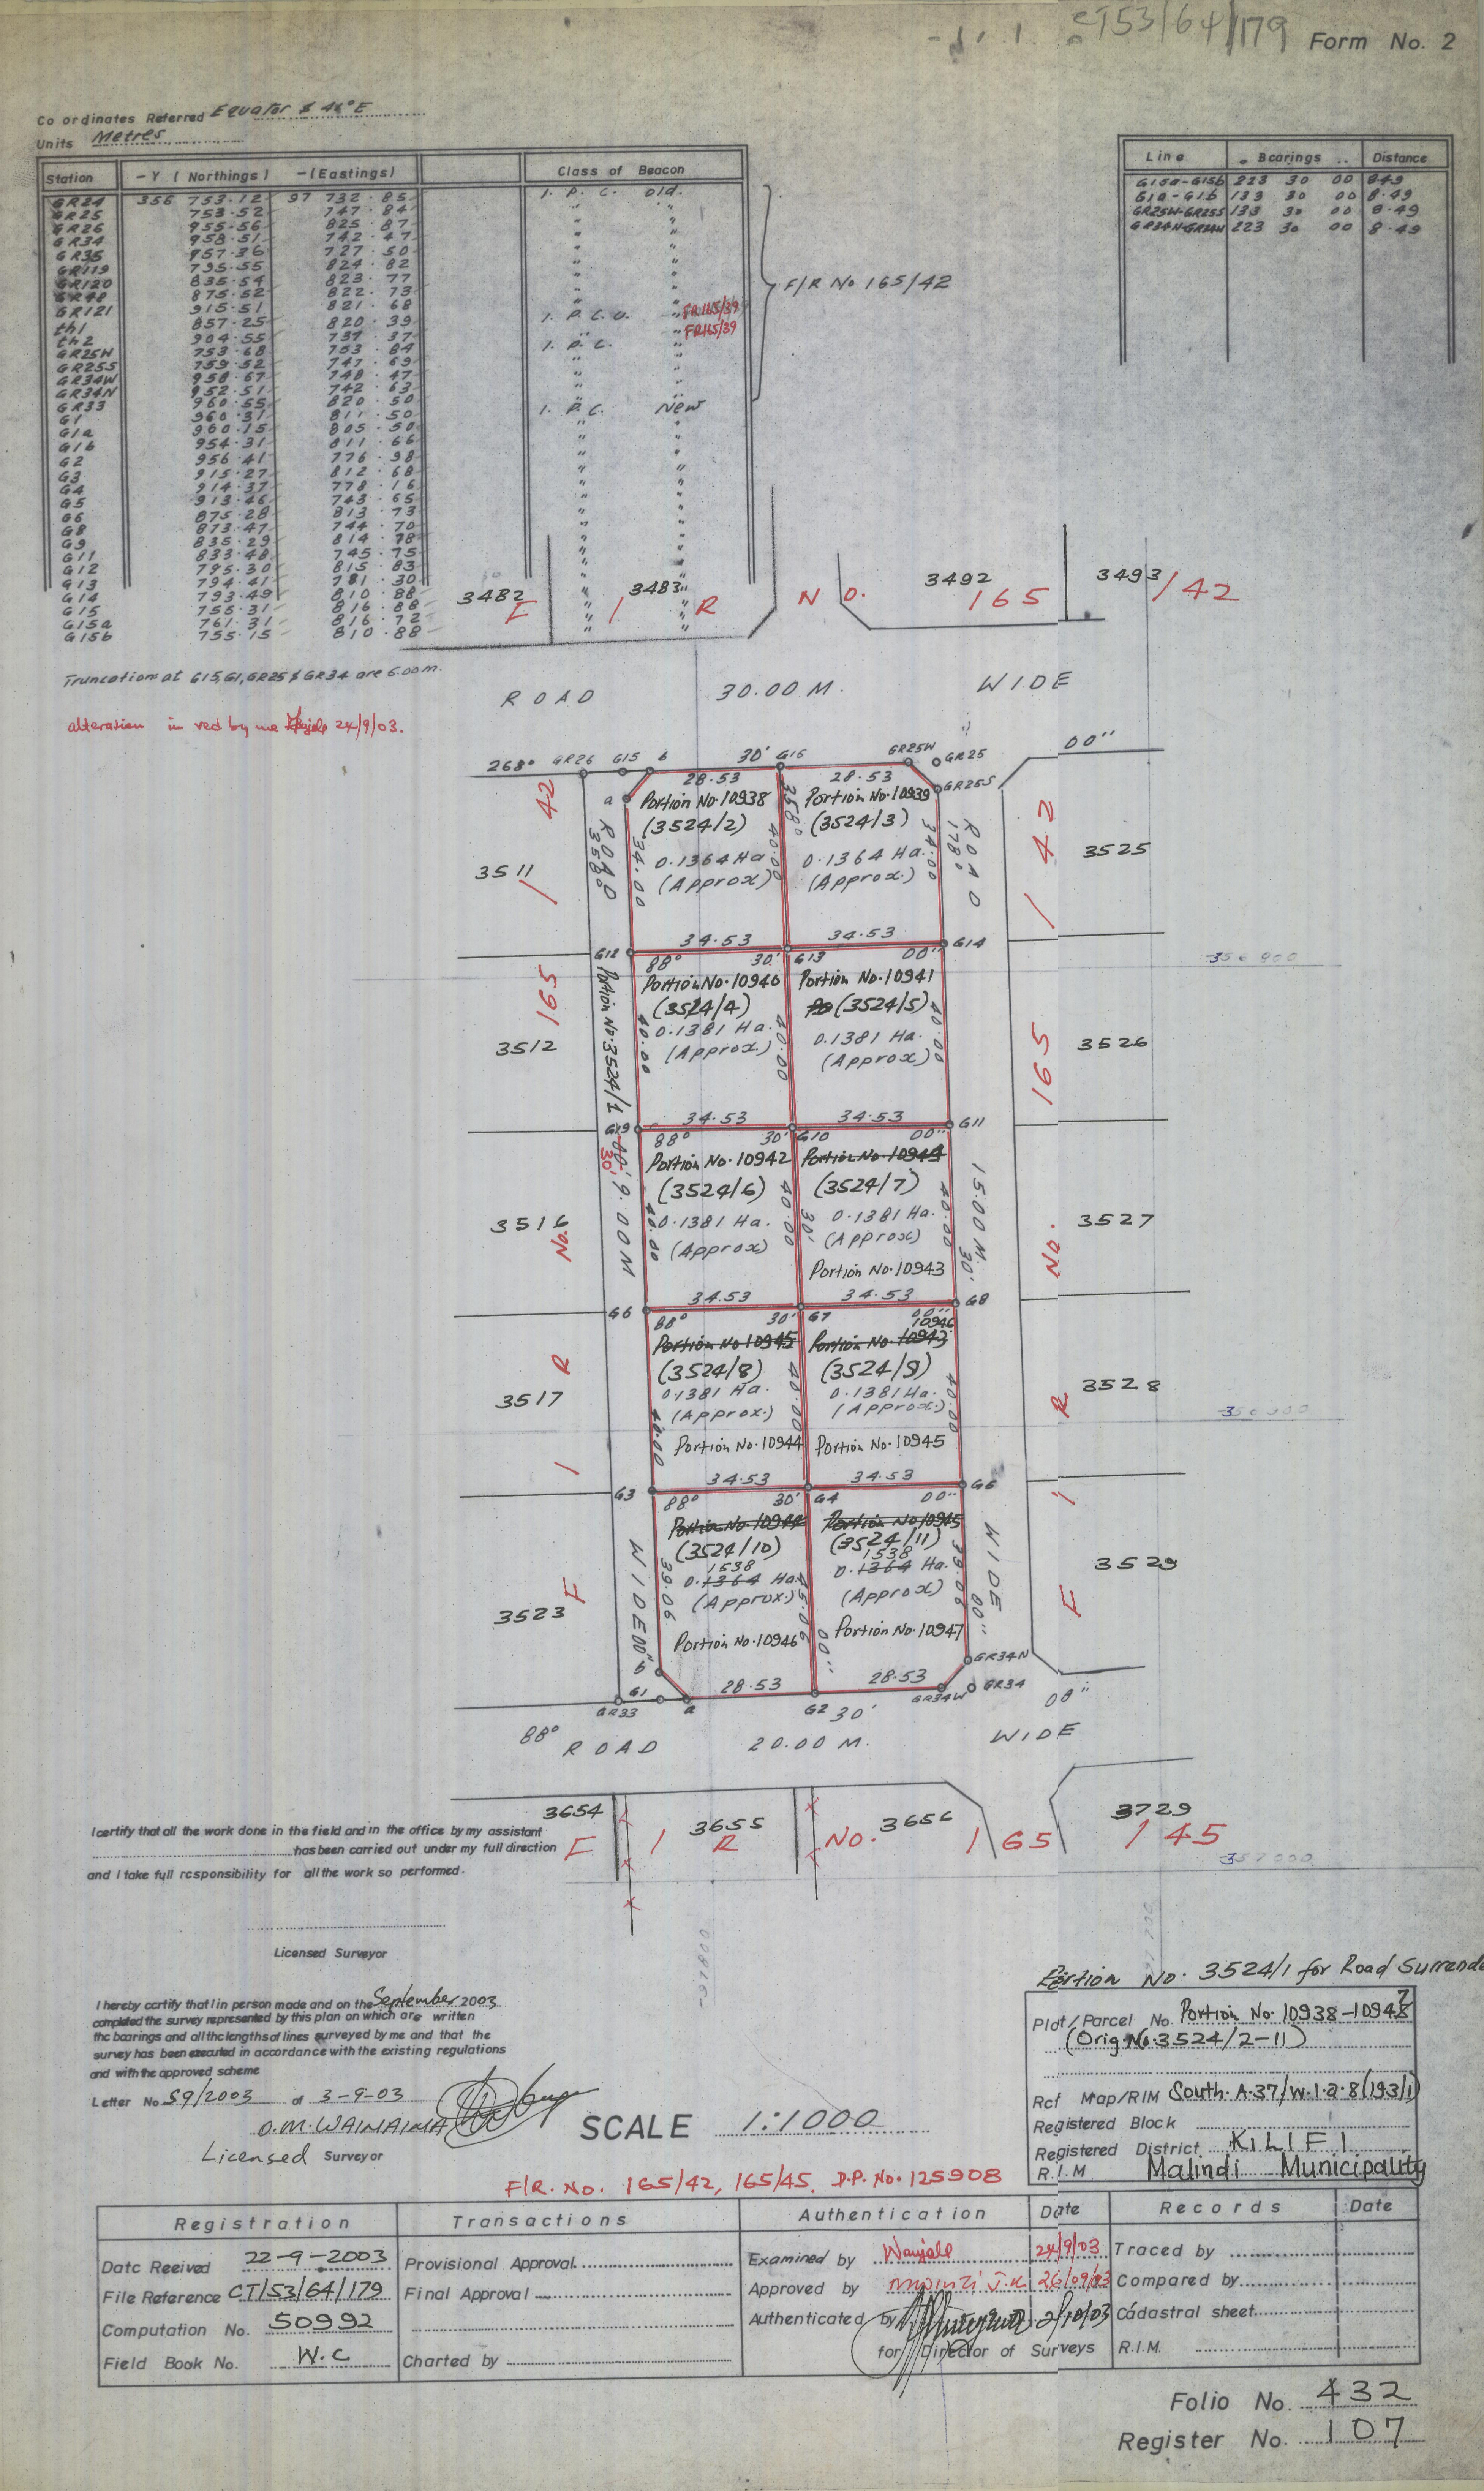 CT53/64/179 Form No. 2
Co ordinates Referred Equator & 40° E
Units Metres
Station -Y (Northings) -(Eastings) Class of Beacon
GR24 356 753.12 97 732.85 I. P. C. old.
GR25 753.52 747.84 "
GR26 955.56 825.87 "
GR34 958.51 742.47 "
GR35 957.36 727.50 "
GR119 795.55 824.82 "
GR120 835.54 823.77 "
875.52 822.73 "
GR121 915.51 821.68 "
th1 857.25 820.39 I. P.C.U. " FR165/39
th2 904.55 739.37 " FR165/39
GR25W 753.68 753.84 I. P.C.
GR25S 759.52 747.69 "
GR34W 958.67 748.47 "
GR34N 952.51 742.63 "
GR33 960.55 820.50 "
G1 960.31 811.50 I. P.C. New
G1a 960.15 805.50 "
G1b 954.31 811.66 "
G2 956.41 776.98 "
G3 915.27 812.68 "
G4 914.37 778.16 "
G5 913.46 743.65 "
G6 875.28 813.73 "
G8 873.47 744.70 "
G9 835.29 814.78 "
G11 833.48 745.75 "
G12 795.30 815.83 "
G13 794.41 781.30 "
G14 793.49 810.88 "
G15 755.31 816.88 "
G15a 761.31 816.72 "
G15b 755.15 810.88 "
F/R No 165/42
Line Bearings Distance
G15a-G15b 223 30 00 8.49
G1a-G1b 133 30 00 8.49
GR25W-GR25S 133 30 00 8.49
GR34N-GR34W 223 30 00 8.49
Truncations at G15,G1,GR25 & GR34 are 6.00m.
alteration in red by me 24/9/03.
3482 3483 3492 3493
F / R N O. 165 / 42
ROAD 30.00 M. WIDE
268° GR26 G15 b 30' G16 GR25W GR25 00"
28.53 28.53 GR25S
a Portion No.10938 Portion No.10939
(3524/2) (3524/3)
0.1364 Ha 0.1364 Ha.
(Approx) (Approx.)
3511 ROAD 358° 34.00 358° 40.00 34.00 178° ROAD 3525
34.53 34.53
G12 88° 30' G13 00" G14
Portion No.10940 Portion No.10941
(3524/4) Po (3524/5)
0.1381 Ha. 0.1381 Ha.
(Approx.) (Approx)
3512 Portion No.3524/1 40.00 40.00 40.00 3526
-356 900
34.53 34.53
G19 88° 30' G10 00" G11
Portion No.10942 Portion No.10944
(3524/6) (3524/7)
0.1381 Ha. 0.1381 Ha.
(Approx) (Approx)
Portion No.10943
3516 30' 00' 9.00M 40.00 40.00 30' 40.00 15.00 M. 30' 3527
34.53 34.53
G6 88° 30' G7 00" G8
10946
Portion No 10945 Portion No.10943
(3524/8) (3524/9)
0.1381 Ha. 0.1381 Ha.
(Approx.) (Approx.)
Portion No.10944 Portion No.10945
3517 40.00 40.00 40.00 3528
34.53 34.53
G3 88° 30' G4 00" G5
Portion No.10944 Portion No.10945
(3524/10) (3524/11)
1538 1538
0.1364 Ha. 0.1364 Ha.
(Approx.) (Approx)
Portion No.10946 Portion No.10947
3523 WIDE 00" 39.06 45.06 00" 39.06 WIDE 00" 3529
F / R No. 165 / 42
F / R No. 165 / 42
b GR34N
28.53 28.53
GR33 G1 a G2 30' GR34W GR34 00"
88° ROAD 20.00 M. WIDE
3654 3655 3656 3729
F / R No. 165 / 45
-357 000
I certify that all the work done in the field and in the office by my assistant
has been carried out under my full direction
and I take full responsibility for all the work so performed.
Licensed Surveyor
I hereby certify that I in person made and on the September 2003
completed the survey represented by this plan on which are written
the bearings and all the lengths of lines surveyed by me and that the
survey has been executed in accordance with the existing regulations
and with the approved scheme
Letter No S9/2003 of 3-9-03
D.M. WAINAINA
Licensed Surveyor
SCALE 1:1000
Portion No. 3524/1 for Road Surrende
Plot/Parcel No. Portion No. 10938-10948 7
(Orig. No. 3524/2-11)
Ref Map/RIM South. A.37/W.1.2.8(193/1)
Registered Block
Registered District KILIFI
R.I.M Malindi Municipality
F/R. No. 165/42, 165/45. D.P. No. 125908
Registration Transactions Authentication Date Records Date
Date Reeived 22-9-2003 Provisional Approval Examined by Wanjala 24/9/03 Traced by
File Reference CT/53/64/179 Final Approval Approved by J.K 26/09/03 Compared by
Computation No. 50992 Authenticated by 2/10/03 Cadastral sheet
Field Book No. W.C Charted by for Director of Surveys R.I.M.
Folio No. 432
Register No. 107